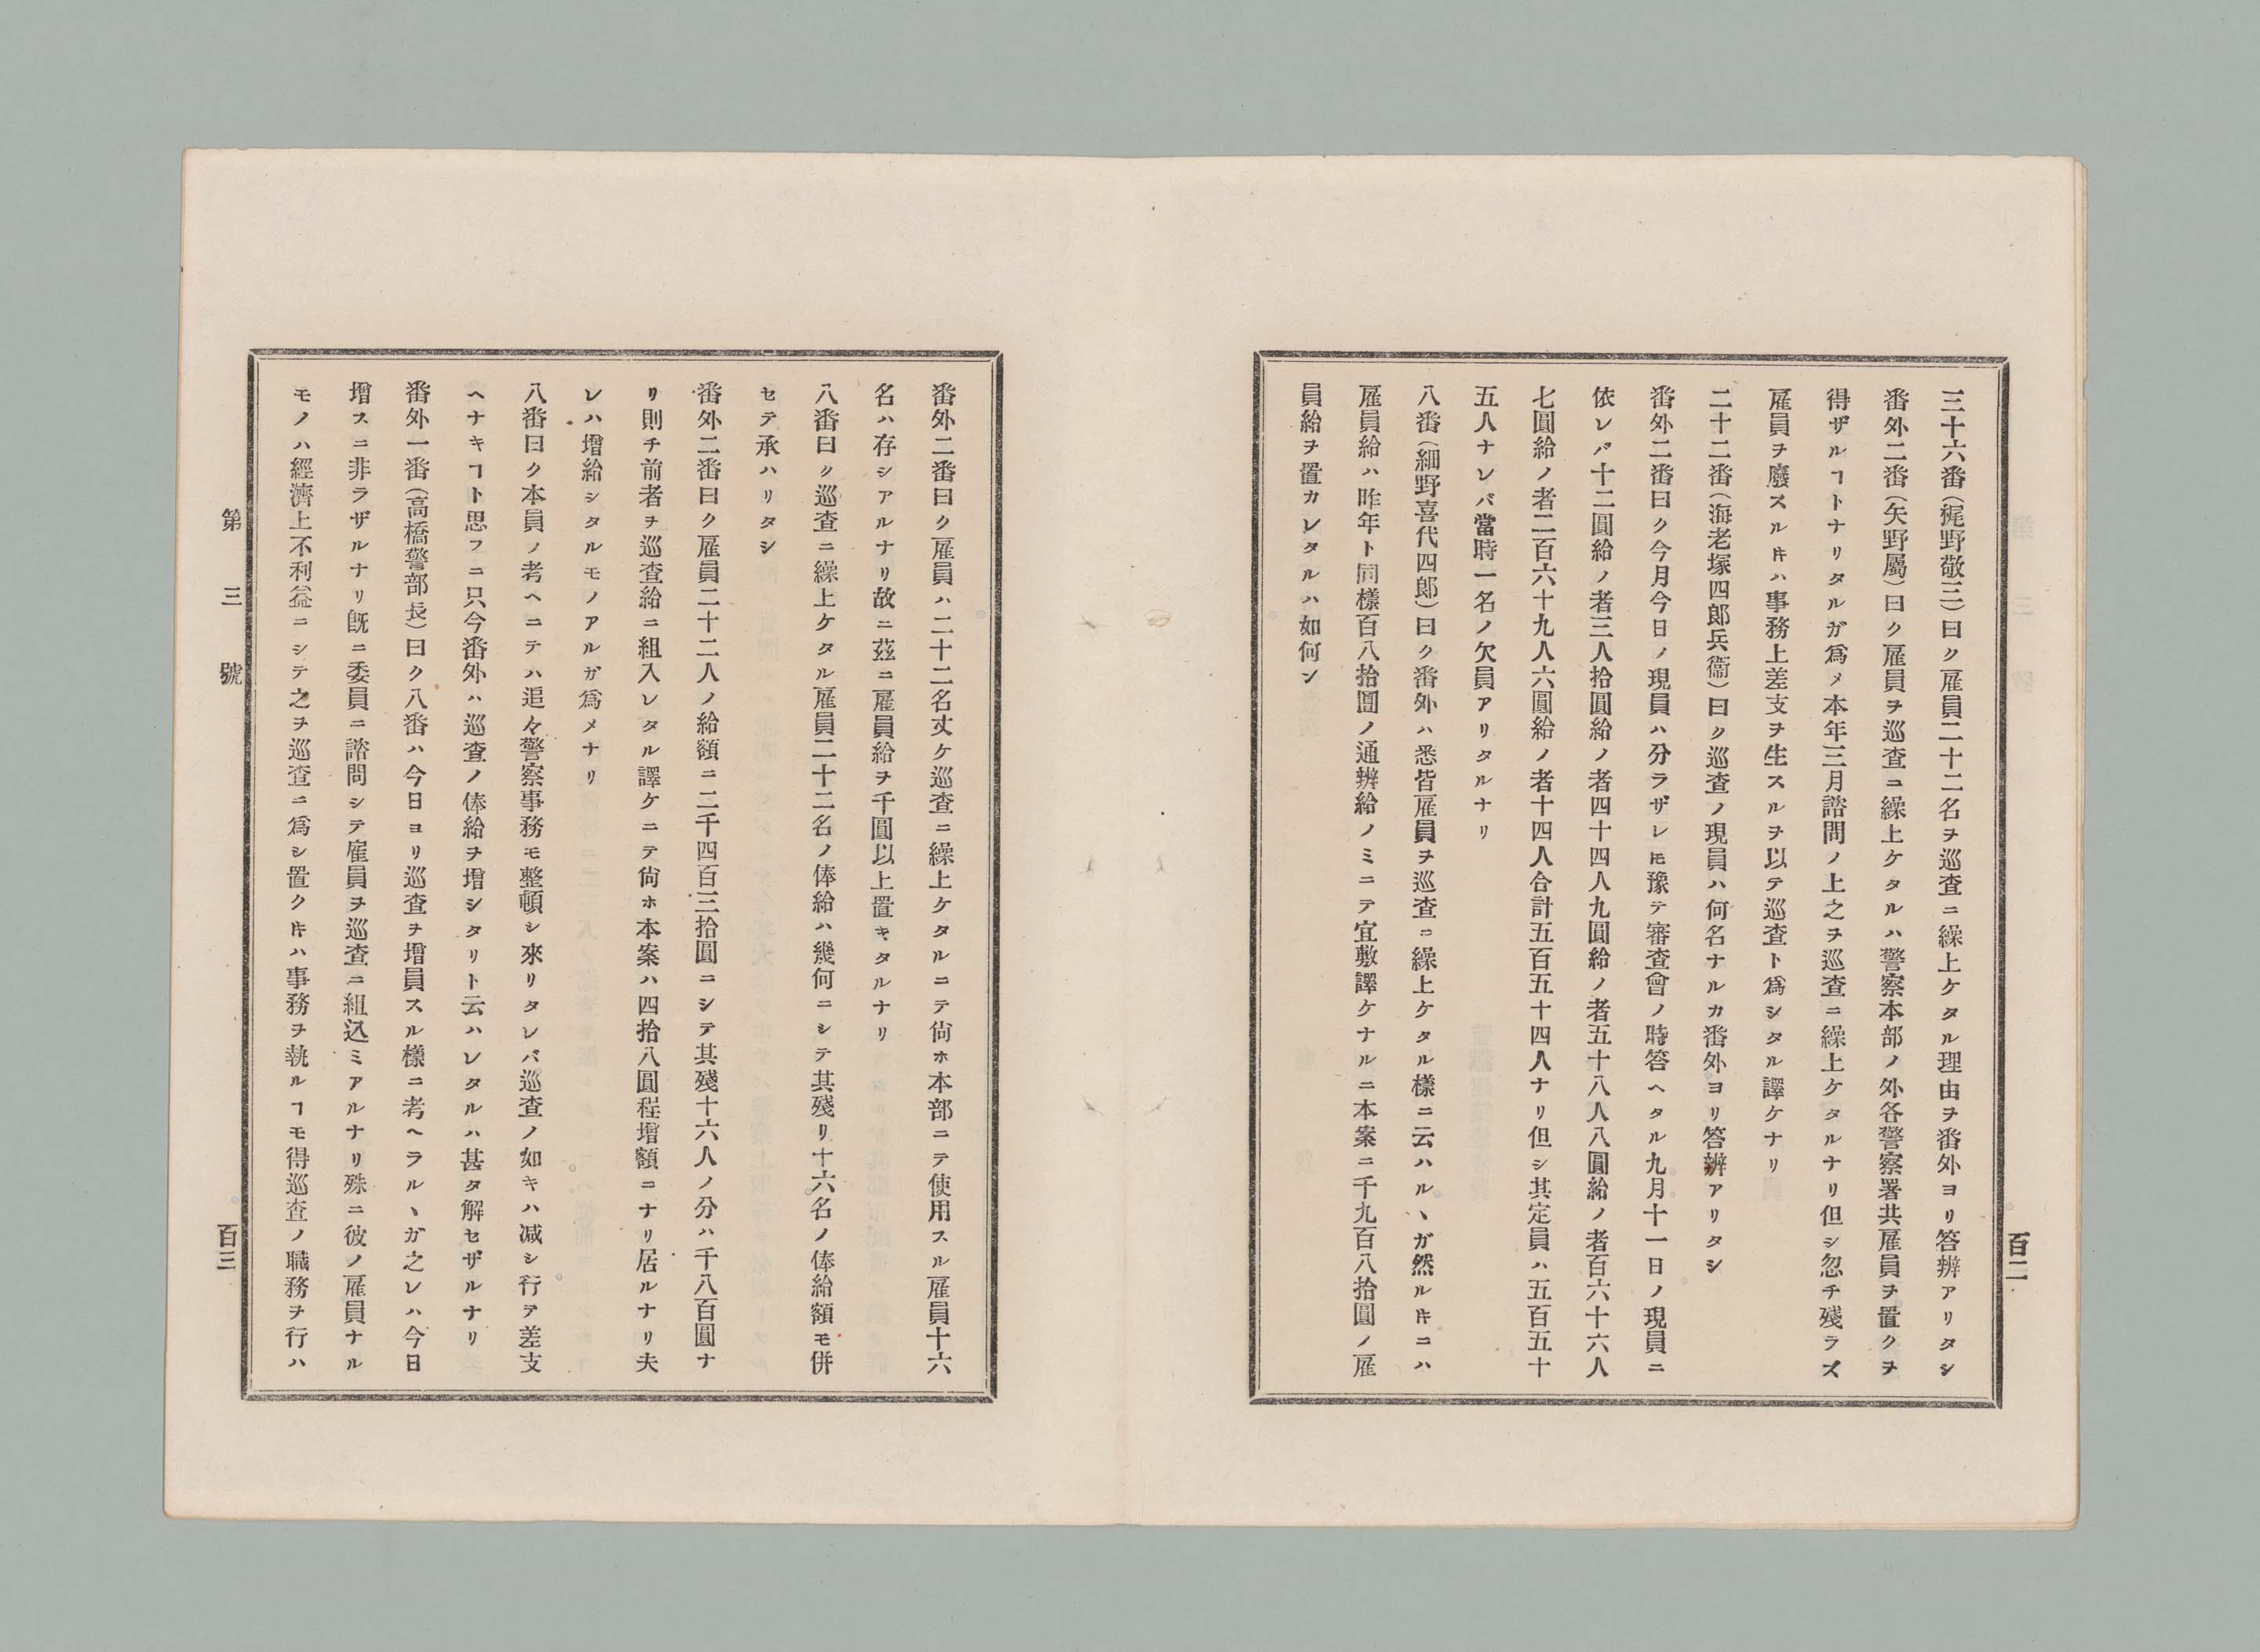 百二
三十六番（梶野敬三）曰ク雇員二十二名ヲ巡査ニ繰上ケタル理由ヲ番外ヨリ答辨アリタシ
番外二番（矢野屬）曰ク雇員ヲ巡査ニ繰上ケタルハ警察本部ノ外各警察署共雇員ヲ置クヲ
得ザルヿトナリタルガ爲メ本年三月諮問ノ上之ヲ巡査ニ繰上ケタルナリ但シ忽チ殘ラズ
雇員ヲ廢スルㇳキハ事務上差支ヲ生スルヲ以テ巡査ト爲シタル譯ケナリ
二十二番（海老塚四郎兵衞）曰ク巡査ノ現員ハ何名ナルカ番外ヨリ答辨アリタシ
番外二番曰ク今月今日ノ現員ハ分ラザレㇳモ豫テ審査會ノ時答ヘタル九月十一日ノ現員ニ
依レバ十二圓給ノ者三人拾圓給ノ者四十四人九圓給ノ者五十八人八圓給ノ者百六十六人
七圓給ノ者二百六十九人六圓給ノ者十四人合計五百五十四人ナリ但シ其定員ハ五百五十
五人ナレバ當時一名ノ欠員アリタルナリ
八番（細野喜代四郎）曰ク番外ハ悉皆雇員ヲ巡査ニ繰上ケタル樣ニ云ハルヽガ然ルㇳキニハ
雇員給ハ昨年ト同樣百八拾圓ノ通辨給ノミニテ宜敷譯ケナルニ本案ニ千九百八拾圓ノ雇
員給ヲ置カレタルハ如何ン
番外二番曰ク雇員ハ二十二名丈ケ巡査ニ繰上ケタルニテ尙ホ本部ニテ使用スル雇員十六
名ハ存シアルナリ故ニ茲ニ雇員給ヲ千圓以上置キタルナリ
八番曰ク巡査ニ繰上ケタル雇員二十二名ノ俸給ハ幾何ニシテ其殘リ十六名ノ俸給額モ併
セテ承ハリタシ
番外二番曰ク雇員二十二人ノ給額ニ二千四百三拾圓ニシテ其殘十六人ノ分ハ千八百圓ナ
リ則チ前者ヲ巡査給ニ組入レタル譯ケニテ尙ホ本案ハ四拾八圓程增額ニナリ居ルナリ夫
レハ增給シタルモノアルガ爲メナリ
八番曰ク本員ノ考ヘニテハ追々警察事務モ整頓シ來リタレバ巡査ノ如キハ减シ行テ差支
ヘナキヿト思フニ只今番外ハ巡査ノ俸給ヲ增シタリト云ハレタルハ甚タ解セザルナリ
番外一番（高橋警部長）曰ク八番ハ今日ヨリ巡査ヲ增員スル樣ニ考ヘラルヽガ之レハ今日
增スニ非ラザルナリ旣ニ委員ニ諮問シテ雇員ヲ巡査ニ組込ミアルナリ殊ニ彼ノ雇員ナル
モノハ經濟上不利益ニシテ之ヲ巡査ニ爲シ置クㇳキハ事務ヲ執ルヿモ得巡査ノ職務ヲ行ハ
第三號
百三